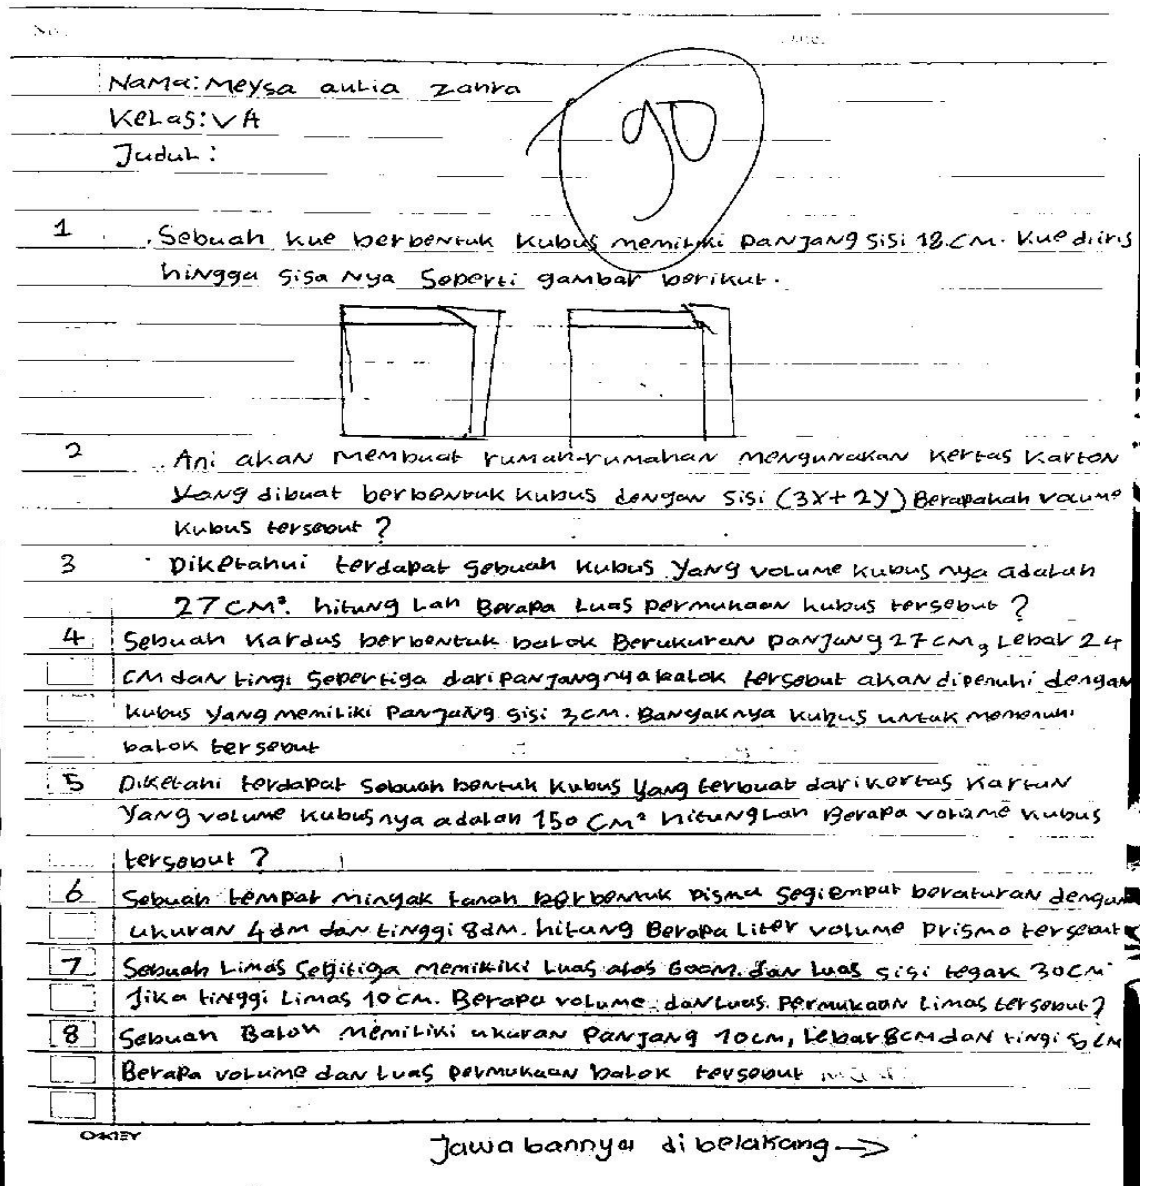 No.
Date.
Nama: Meysa aulia zahra
90
Kelas: VA
Judul:
1 Sebuah kue berbentuk kubus memiliki panjang sisi 18 cm. kue diiris
hingga sisa nya seperti gambar berikut.
2 Ani akan membuat rumah-rumahan mengunakan kertas karton
yang dibuat berbentuk kubus dengan sisi (3x+2y) Berapakah volume
kubus tersebut?
3 Diketahui terdapat sebuah kubus yang volume kubus nya adalah
27 cm³. hitung lah Berapa Luas permukaan kubus tersebut?
4 Sebuah kardus berbentuk balok Berukuran panjang 27 cm, Lebar 24
cm dan tingi sepertiga dari panjangnya balok tersebut akan dipenuhi dengan
kubus yang memiliki panjang sisi 3cm. Banyaknya kubus untuk memenuhi
balok tersebut
5 Diketahi terdapat sebuah bentuk kubus yang terbuat dari kertas kartun
yang volume kubusnya adalah 150 cm² hitunglah Berapa volume kubus
tersebut?
6 Sebuah tempat minyak tanah berbentuk pisma segiempat beraturan dengan
ukuran 4dm dan tinggi 8dm. hitung Berapa Liter volume prisma tersebut
7 Sebuah Limas segitiga memikiki luas alas 600m. dan luas sisi tegak 30cm
Jika tinggi Limas 10 cm. Berapa volume dan Luas permukaan Limas tersebut?
8 Sebuah Balok memiliki ukuran panjang 10cm, Lebar 8cm dan tingi 5 cm
Berapa volume dan Luas permukaan balok tersebut
OKEY
Jawabannya dibelakang →